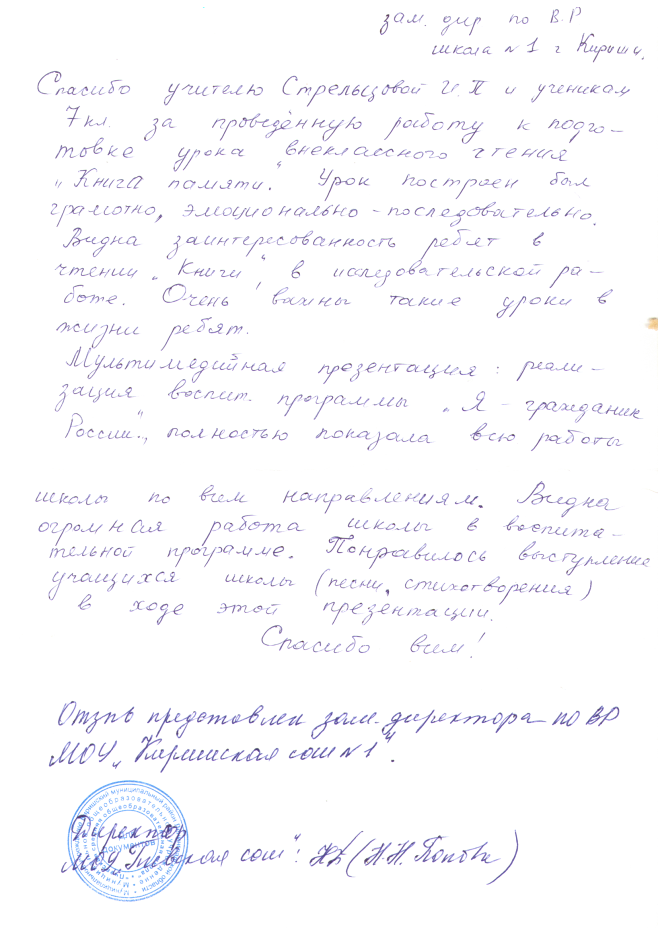 зам. дир по В.Р
школа №1 г Кириши.
Спасибо учителю Стрельцовой И.П и ученикам
7 кл. за проведённую работу к подго-
товке урока "внеклассного чтения
"Книга памяти." Урок построен был
грамотно, эмоционально-последовательно.
Видна заинтересованность ребят в
чтении "Книги", в исследовательской ра-
боте. Очень важны такие уроки в
жизни ребят.
Мультимедийная презентация: реали-
зация воспит. программы "Я - гражданин
России", полностью показала всю работы
школы по всем направлениям. Видна
огромная работа школы в воспита-
тельной программе. Понравилось выступление
учащихся школы (песни, стихотворения)
в ходе этой презентации.
Спасибо всем!
Отзыв представлен зам. директора по ВР
МОУ "Киришская сош №1".
Директор
МОУ сош": (Н.Н. Попова)
документов